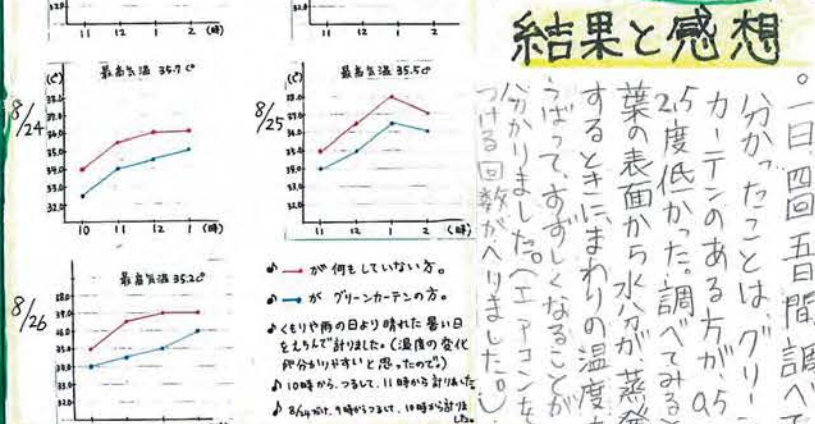 32.0
11 12 1 2 (時)
32.0
11 12 1 2 (時)
8/24
(℃)
最高気温 35.7℃
38.0
37.0
36.0
35.0
34.0
33.0
32.0
10 11 12 1 (時)
8/25
(℃)
最高気温 35.5℃
38.0
37.0
36.0
35.0
34.0
33.0
32.0
11 12 1 2 (時)
8/26
最高気温 35.2℃
38.0
37.0
36.0
35.0
34.0
33.0
32.0
♪ が 何もしていない方。
♪ が グリーンカーテンの方。
♪ くもりや雨の日より晴れた暑い日
をえらんで計りました。(温度の変化
が分かりやすいと思ったので。)
♪ 10時から、つるして、11時から計りました
♪ 8/24だけ、9時からつるして、10時から計りま
した。
結果と感想
。一日、四回、五日間、調べて
分かったことは、グリーン
カーテンのある方が、0.5
2.5度低かった。調べてみると
葉の表面から水分が、蒸発
するときに、まわりの温度を
うばって、すずしくなることが
分かりました。(エアコンを
つける回数がへりました。)